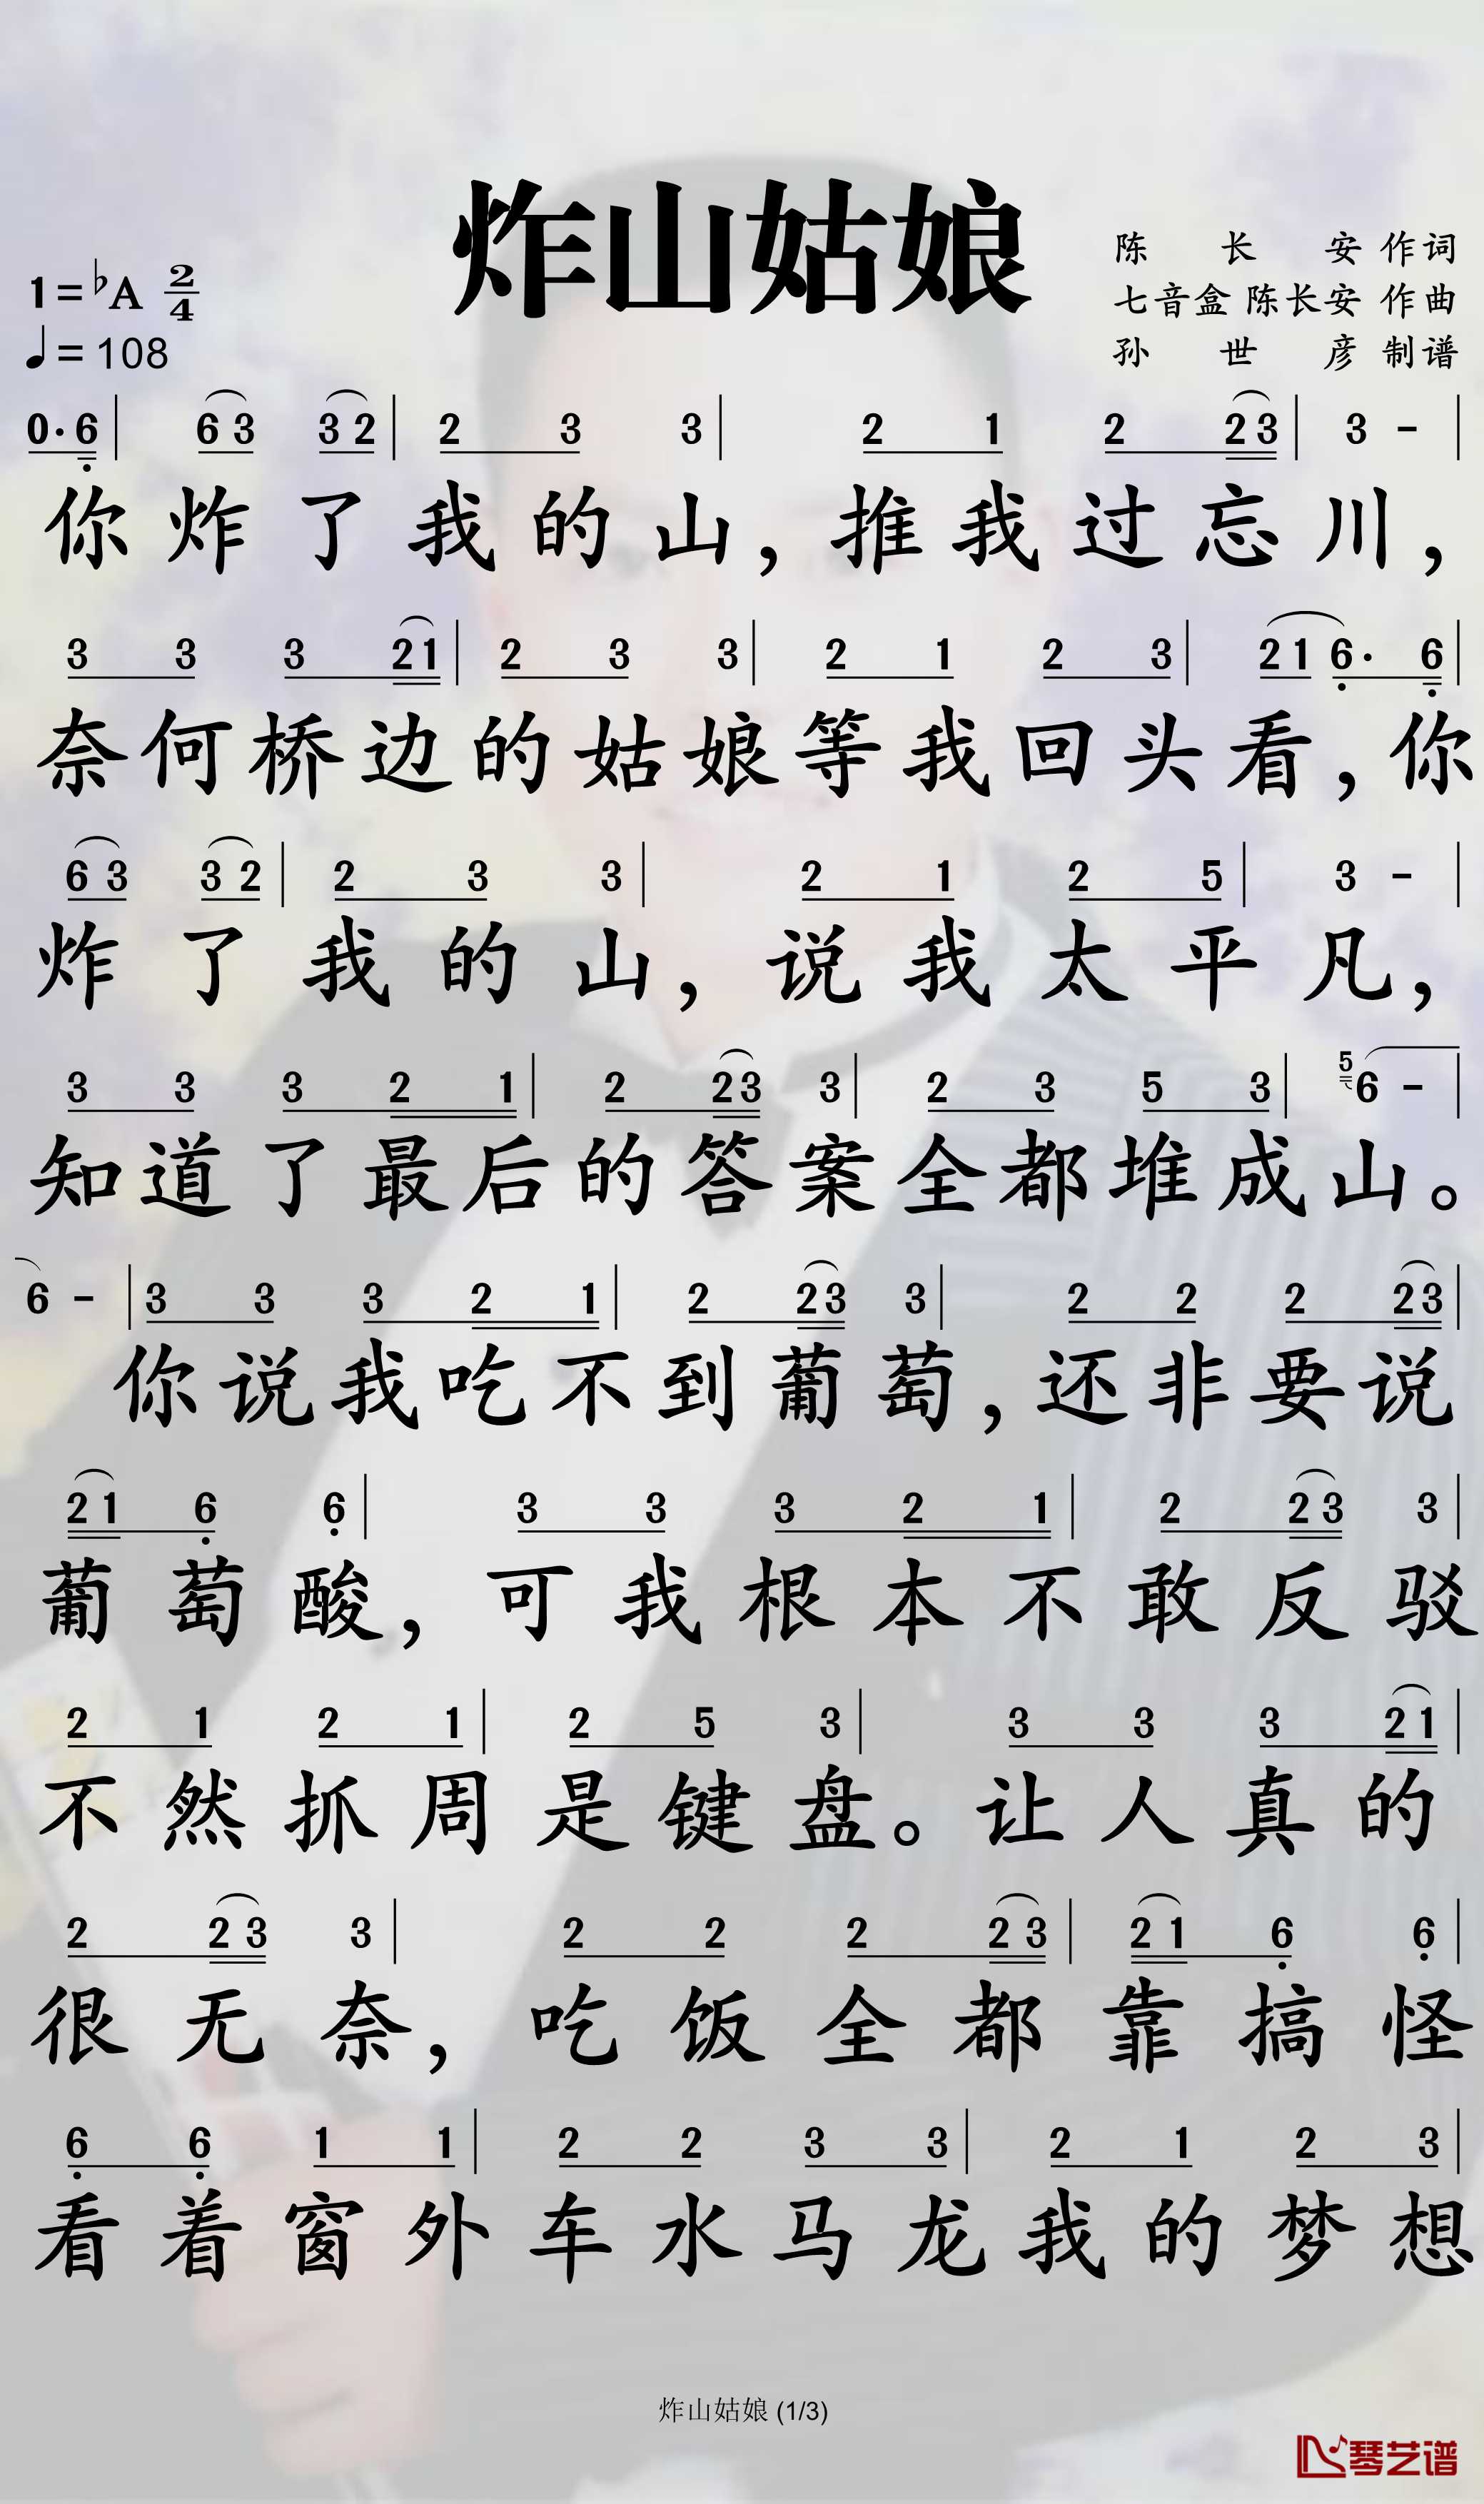 炸山姑娘
1=♭A 2/4
♩=108
陈长安 作词
七音盒 陈长安 作曲
孙世彦 制谱
0· 6 | 6 3 3 2 | 2 3 3 | 2 1 2 2 3 | 3 - |
你炸了我的山，推我过忘川，
3 3 3 2 1 | 2 3 3 | 2 1 2 3 | 2 1 6· 6 |
奈何桥边的姑娘等我回头看，你
6 3 3 2 | 2 3 3 | 2 1 2 5 | 3 - |
炸了我的山，说我太平凡，
3 3 3 2 1 | 2 2 3 3 | 2 3 5 3 | 5 6 - |
知道了最后的答案全都堆成山。
6 - | 3 3 3 2 1 | 2 2 3 3 | 2 2 2 2 3 |
你说我吃不到葡萄，还非要说
2 1 6 6 | 3 3 3 2 1 | 2 2 3 3 |
葡萄酸，可我根本不敢反驳
2 1 2 1 | 2 5 3 | 3 3 3 2 1 |
不然抓周是键盘。让人真的
2 2 3 3 | 2 2 2 2 3 | 2 1 6 6 |
很无奈，吃饭全都靠搞怪
6 6 1 1 | 2 2 3 3 | 2 1 2 3 |
看着窗外车水马龙我的梦想
炸山姑娘 (1/3)
琴艺谱